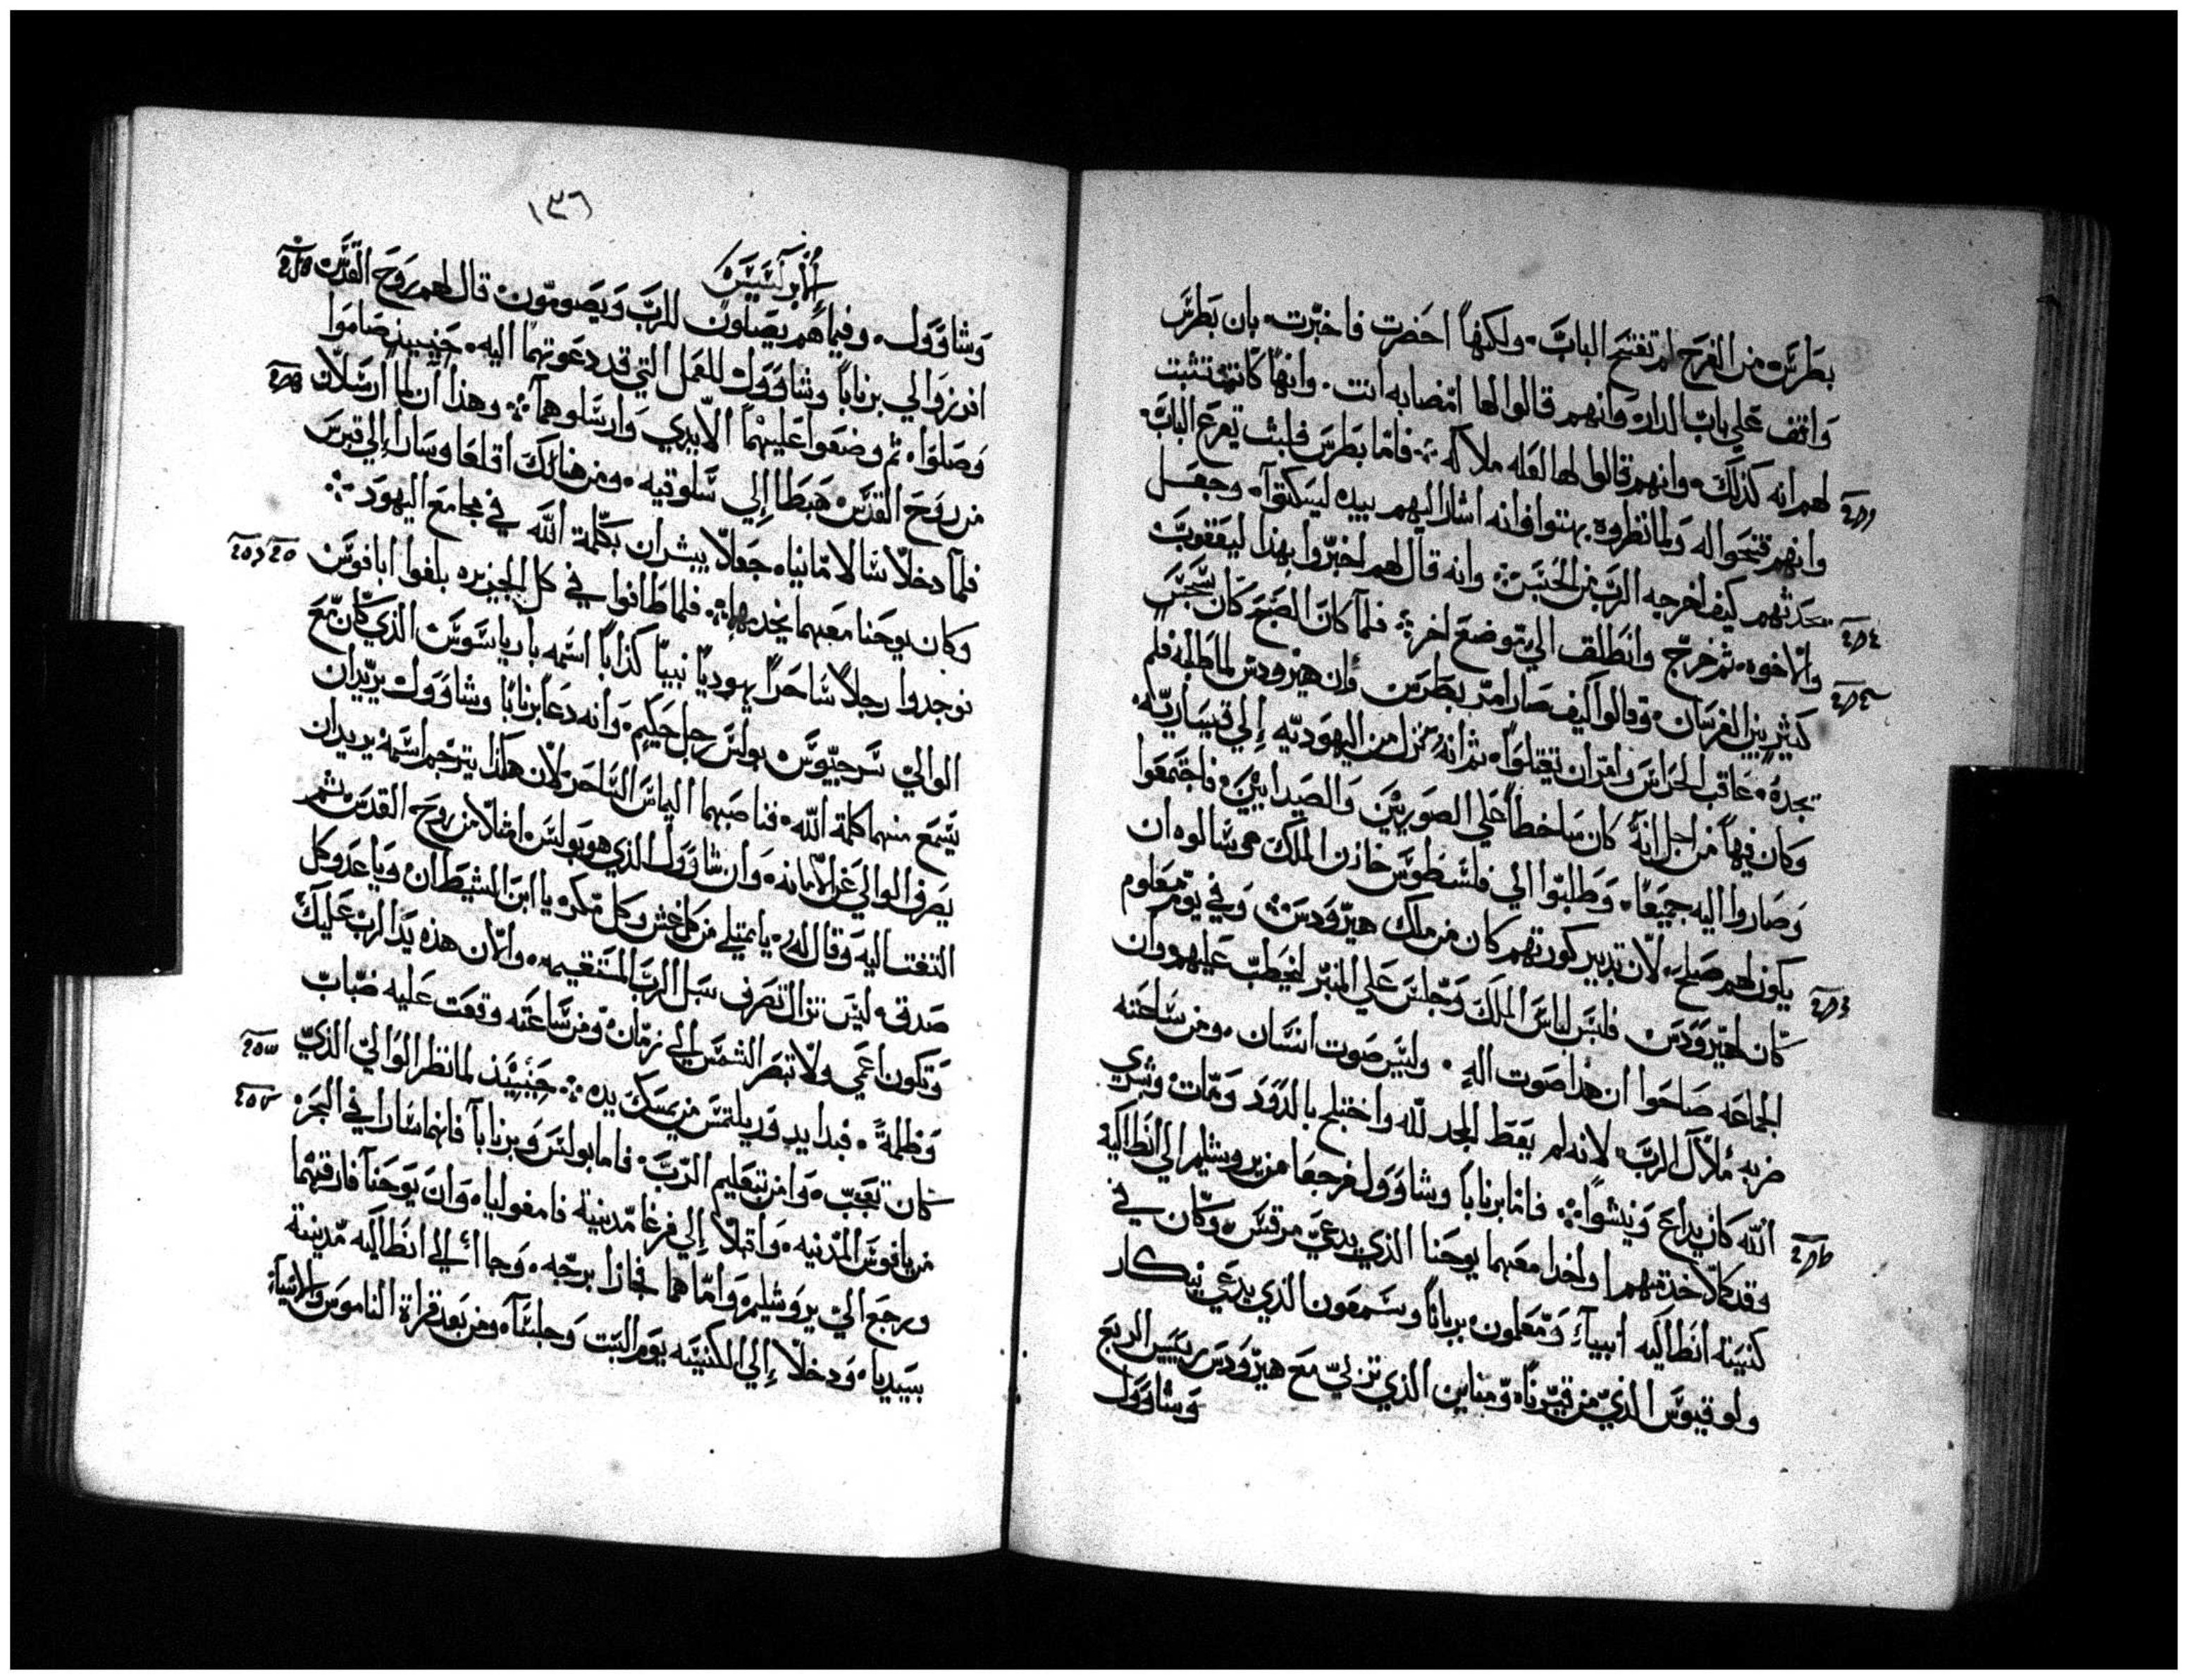 بطرس من الفرح لم تفتح الباب. ولكنها احضرت فاخبرت بان بطرس
واقف علي باب الدار وانهم قالوا لها امصابه انت. وانها كانت تثبت
لهم انه كذلك وانهم قالوا لها لعله ملاكه ܀ فاما بطرس فلبث يقرع الباب
وانهم فتحوا له ولما نظروه بهتوا فانه اشار اليهم بيده ليسكتوا وجعل
يحدثهم كيف اخرجه الرب من الحبس ܀ وانه قال لهم اخبروا بهذا ليعقوب
والاخوه ثم خرج وانطلق الي موضع اخر ܀ فلما كان الصبح كان سجس
كثير بين الفرسان وقالوا كيف صار امر بطرس فان هيرودس لما طلبه فلم
يجده عاقب الحراس وامر ان تقتلوا ثم انه نزل من اليهوديه إلي قيساريه
وكان فيها من اجل انه كان ساخطا علي الصوريين والصيدانيين فاجتمعوا
وصاروا اليه جميعا وطلبوا الي فلسطوس خازن الملك وسالوه ان
يكون لهم صلح لان تدبير كورتهم كان من ملك هيرودس ܀ وفي يوم معلوم
كان لهيرودس فلبس لباس الملك وجلس علي المنبر ليخطب عليهم وان
الجماعه صاحوا ان هذا صوت اله. وليس صوت انسان ومن ساعته
ضربه ملاك الرب لانه لم يعط المجد لله واختلج بالدود ومات وبشري
الله كان يذاع وينشوا ܀ فاما برنابا وشاوول فرجعا من يروشليم الي انطاكيه
وقد كملا خدمتهم واخدا معهما يوحنا الذي يدعي مرقس وكان في
كنيسة انطاكيه انبياء ومعلمون برنابا وسمعون الذي يدعي نيكار
ولوقيوس الذي من قيرنا ومناين الذي تربي مع هيرودس رييس الربع
وشاوول
١٣٦
الابركسيس
وشاوول وفيما هم يصلون للرب ويصومون قال لهم روح القدس
افرزوا لي برنابا وشاوول للعمل التي قد دعوتهما اليه حينيذ صاموا
وصلوا ثم وضعوا عليهما الايدي وارسلوهما ܀ وهذا ان لما ارسلان
من روح القدس هبطا إلي سلوقيه ومن هنالك اقلعا وسارا إلي قبرس
فلما دخلا سالامانيا جعلا يبشران بكلمة الله في مجامع اليهود ܀
وكان يوحنا معهما يخدمهما ܀ فلما طافوا في كل الجزيره بلغوا ابافوس
فوجدوا رجلا ساحرا يهوديا نبيا كذابا اسمه باريا سوس الذي كان مع
الوالي سرجيوس بولس رجل حكيم وانه دعا برنابا وشاوول يريدان
يسمع منهما كلمة الله فناصبهما اليماس الساحر لان هكذا يترجم اسمه يريدان
يصرف الوالي عن الامانه وان شاوول الذي هو بولس امتلا من روح القدس ثم
التفت اليه وقال له يا ممتلي من كل غش وكل مكره يا ابن الشيطان ويا عدو كل
صدقه ليس تزال تصرف سبل الرب المستقيمه والان هذه يد الرب عليك
وتكون اعمي ولا تبصر الشمس الي زمان ومن ساعته وقعت عليه ضباب
وظلمة فبدا يدور يلتمس من يمسك يده ܀ حينيذ لما نظر الوالي الذي
كان تعجب وامن بتعليم الرب فاما بولس وبرنابا فانهما سارا في البحر
من يافوس المدنيه واقبلا إلي فرغا مدينة فامفوليا وان يوحنا فارقهما
ورجع الي يروشليم واما هما فجازا برجه وجاا الي انطاكيه مدينة
بيسيديا ودخلا إلي الكنيسه يوم السبت وجلسا ومن بعد قراة الناموس والانبيآء